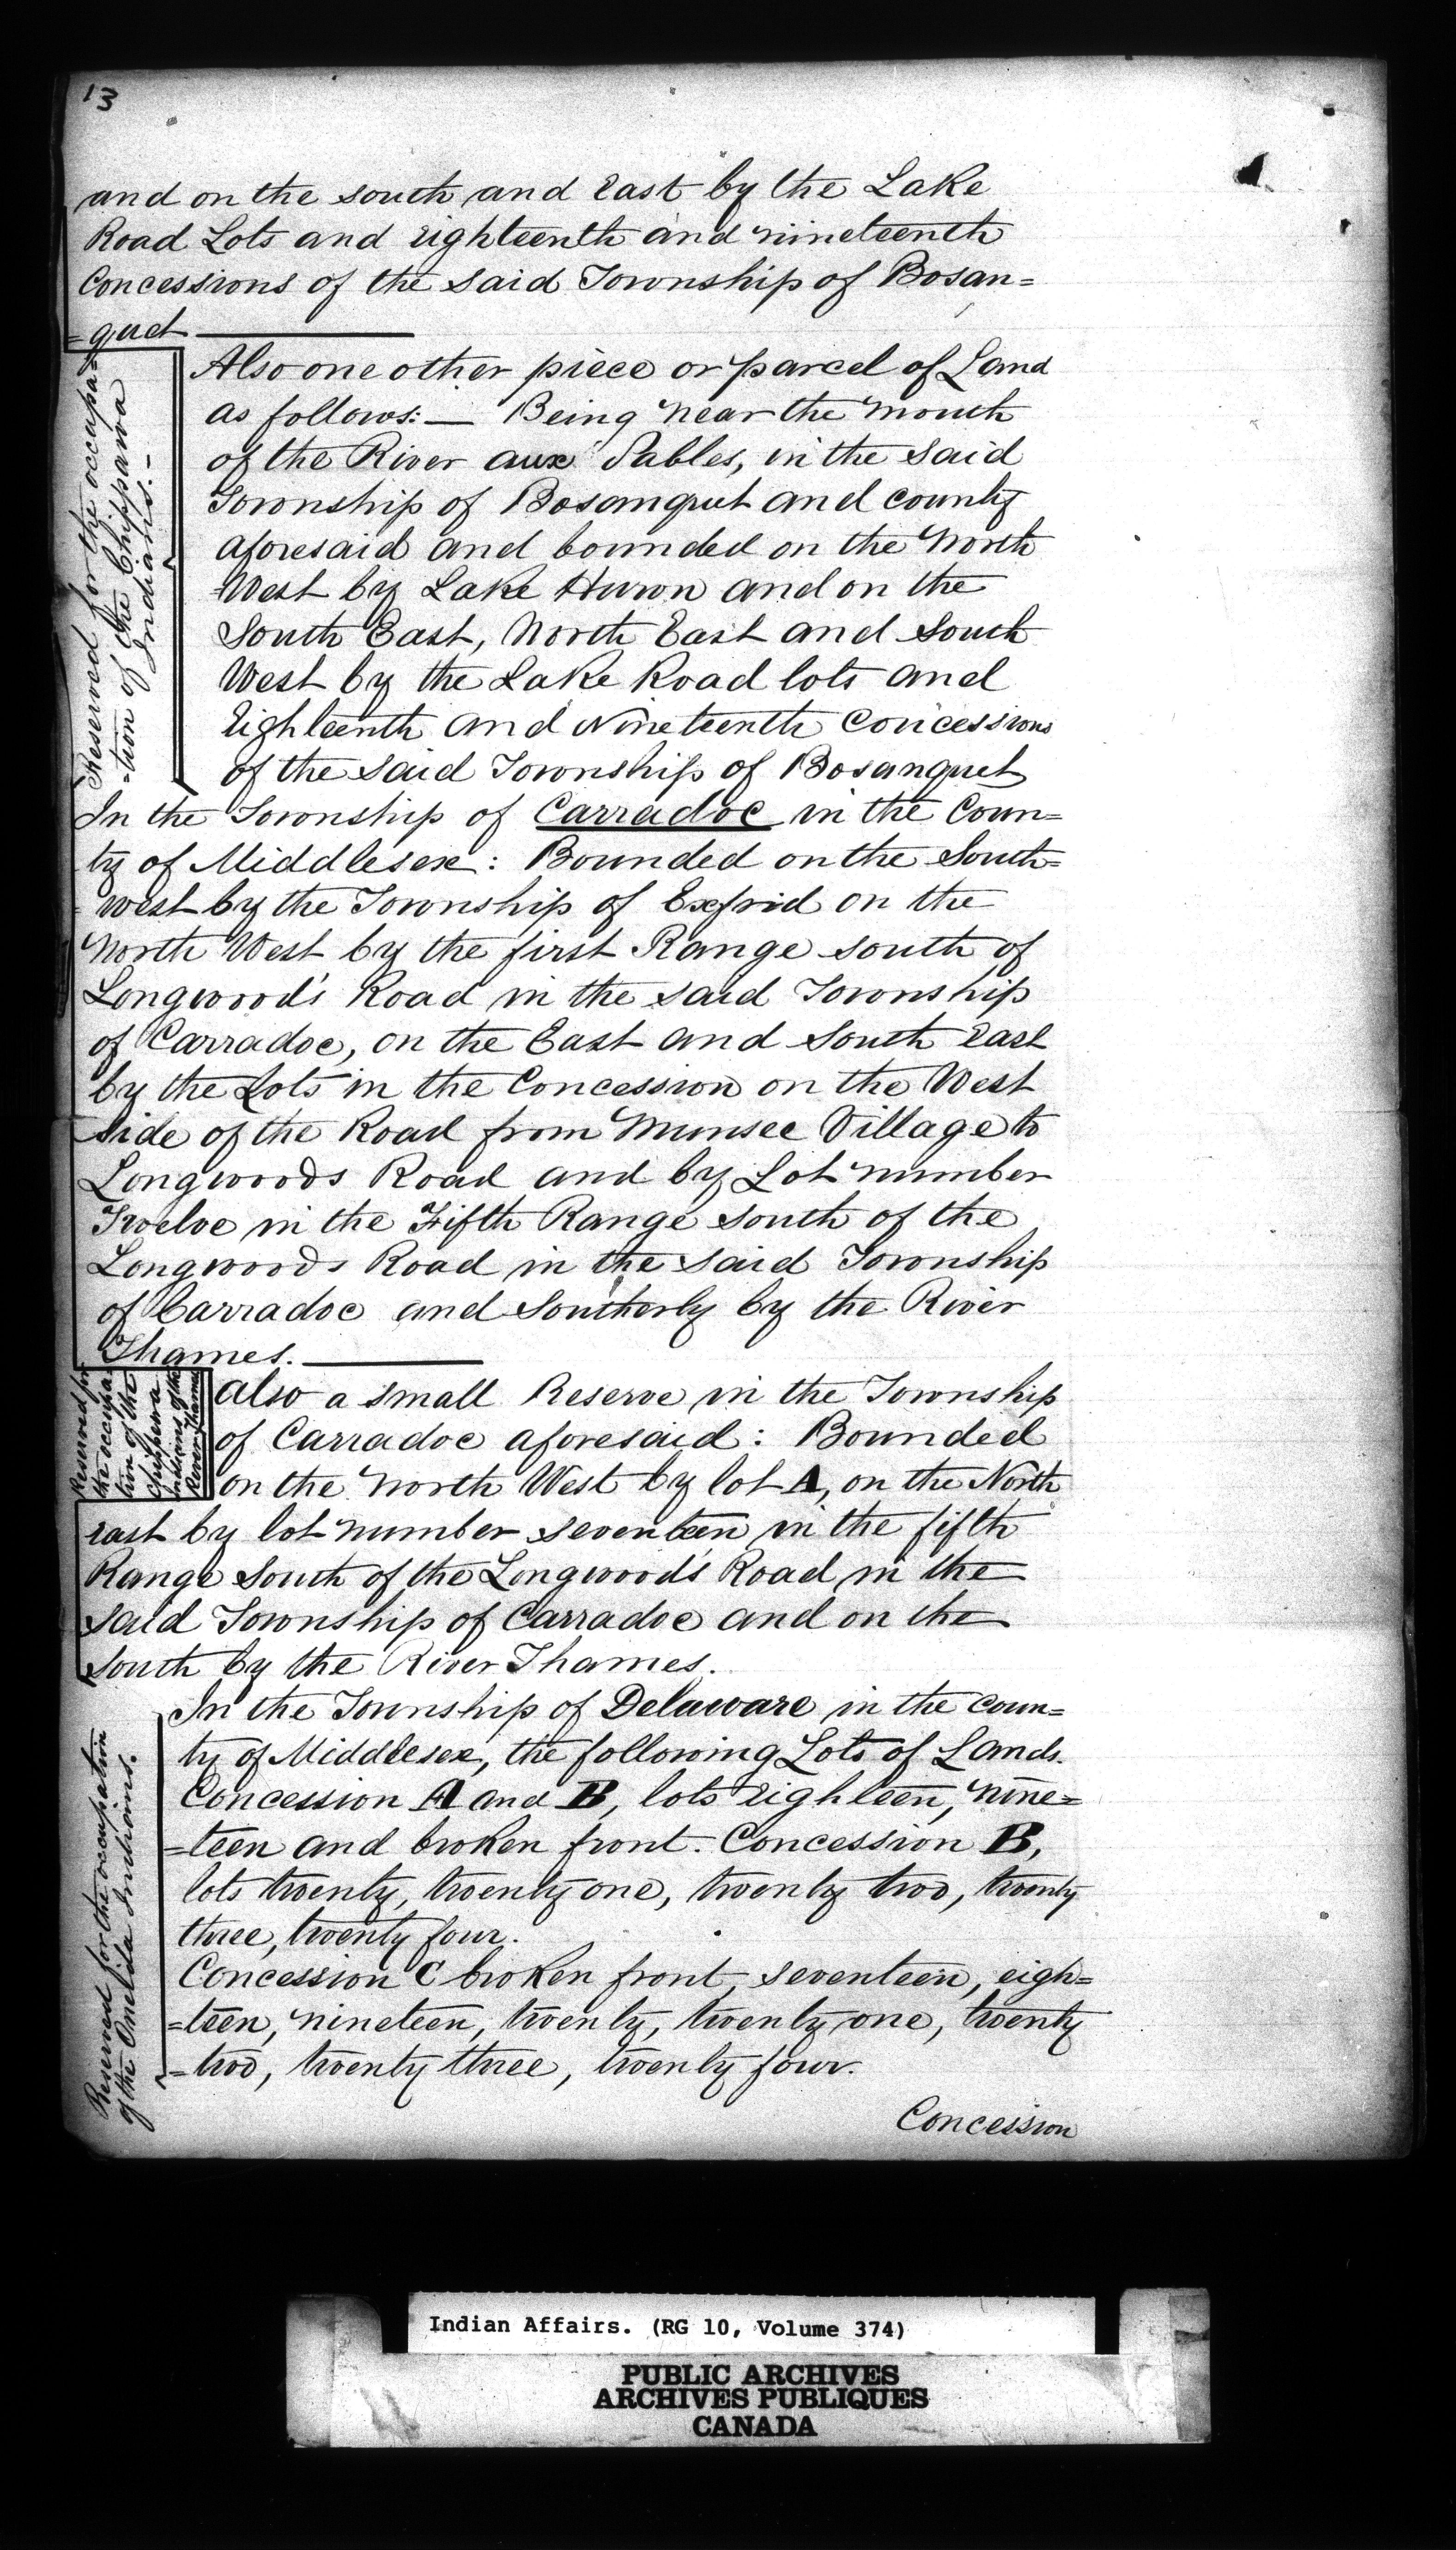 13
and on the south and East by the Lake
Road Lots and Eighteenth and nineteenth
Concessions of the said Township of Bosan=
=quet
Reserved for the occupa=
=tion of the Chippawa
Indians.-
Also one other piece or parcel of Land
as follows:— Being near the mouth
of the River aux Sables, in the said
Township of Bosanquet and county
aforesaid and bounded on the North
West by Lake Huron and on the
South East, North East and South
West by the Lake Road lots and
Eighteenth and Nineteenth Concessions
of the said Township of Bosanquet
In the Township of Carradoc in the Coun=
ty of Middlesex: Bounded on the South=
west by the Township of Exfrid on the
North West by the first Range south of
Longwood's Road in the said Township
of Carradoc, on the East and South East
by the Lots in the Concession on the West
side of the Road from Munsee Village to
Longwoods Road and by Lot number
Twelve in the Fifth Range south of the
Longwoods Road in the said Township
of Carradoc and Southerly by the River
Thames.
Reserved for
the occupa-
tion of the
Chippewa
Indians of the
River Thames
also a small Reserve in the Township
of Carradoc aforesaid: Bounded
on the North West by lot A, on the North
East by lot number seventeen in the fifth
Range South of the Longwood's Road in the
said Township of Carradoc and on the
South by the River Thames.
Reserved for the occupation
of the Oneida Indians.
In the Township of Delaware in the coun=
ty of Middlesex, the following Lots of Lands.
Concession A and B, lots Eighteen, nine=
=teen and broken front. Concession B,
lots twenty, twenty one, twenty two, twenty
three, twenty four.
Concession C broken front, seventeen, eigh=
=teen, nineteen, twenty, twenty one, twenty
=two, twenty three, twenty four.
Concession
Indian Affairs. (RG 10, Volume 374)
PUBLIC ARCHIVES
ARCHIVES PUBLIQUES
CANADA